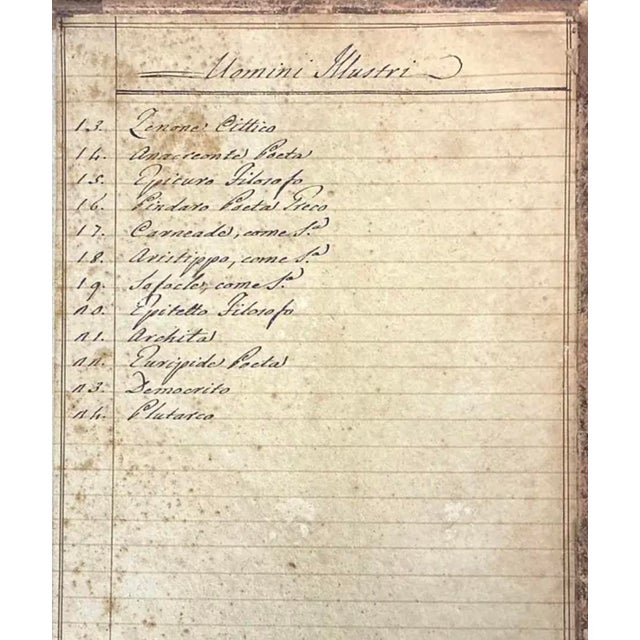 Uomini Illustri
13. Zenone Cittico
14. Anacreonte Poeta
15. Epicuro Filosofo
16. Pindaro Poeta Greco
17. Carneade, come S.ª
18. Aristippo, come S.ª
19. Sofocle, come S.ª
20. Epitetto Filosofo
21. Archita
22. Euripide Poeta
23. Democrito
24. Plutarco